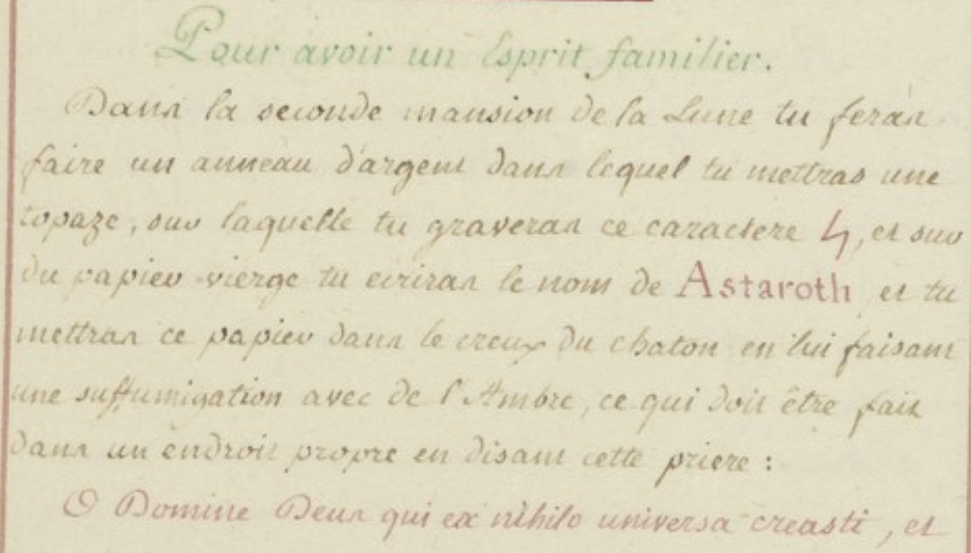 Pour avoir un Esprit familier.
Dans la seconde mansion de la Lune tu feras
faire un anneau d'argent dans lequel tu mettras une
topaze, sur laquelle tu graveras ce caractere ♄, et sur
du papier vierge tu ecriras le nom de Astaroth et tu
mettras ce papier dans le creux du chaton en lui faisant
une suffumigation avec de l'Ambre, ce qui doit être fait
dans un endroit propre en disant cette priere :
O Domine Deus qui ex nihilo universa creasti, et